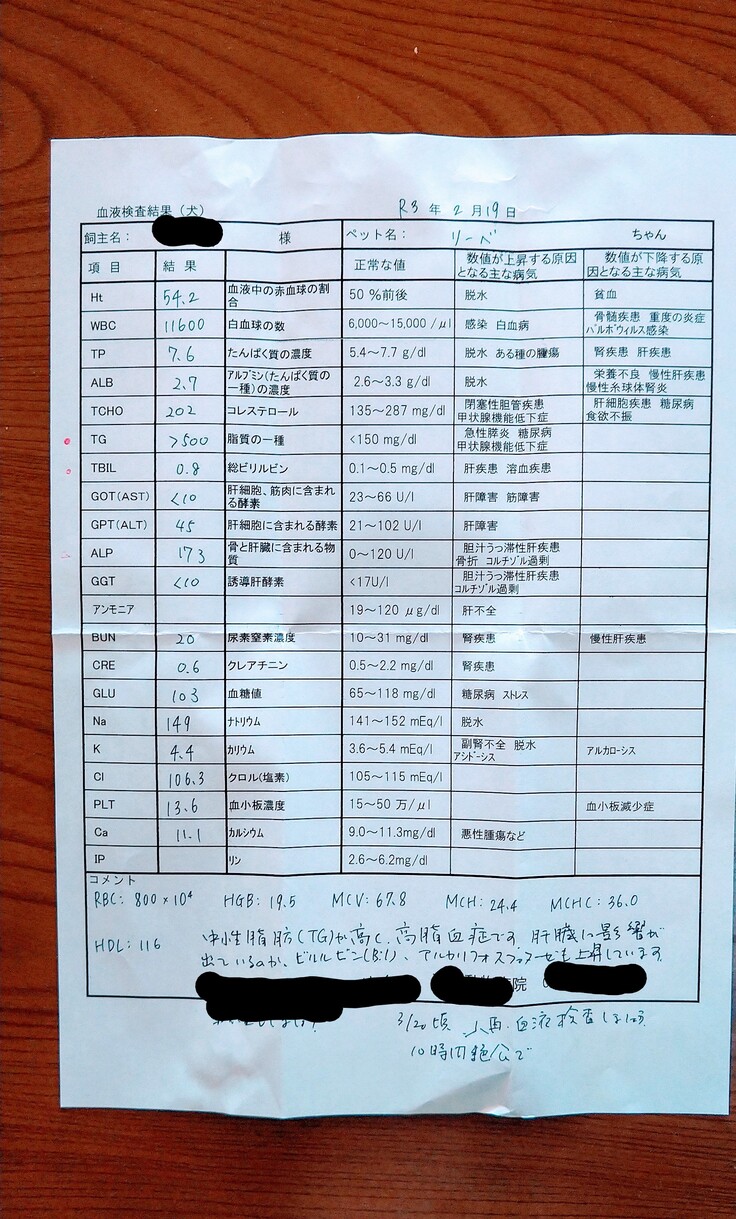 血液検査結果（犬） R3 年 2 月 19 日
飼主名： 様 ペット名： リーベ ちゃん
項 目 結 果 正常な値 数値が上昇する原因となる主な病気 数値が下降する原因となる主な病気
Ht 54.2 血液中の赤血球の割合 50 %前後 脱水 貧血
WBC 11600 白血球の数 6,000～15,000 /μl 感染 白血病 骨髄疾患 重度の炎症 パルボウィルス感染
TP 7.6 たんぱく質の濃度 5.4～7.7 g/dl 脱水 ある種の腫瘍 腎疾患 肝疾患
ALB 2.7 アルブミン(たんぱく質の一種)の濃度 2.6～3.3 g/dl 脱水 栄養不良 慢性肝疾患 慢性糸球体腎炎
TCHO 202 コレステロール 135～287 mg/dl 閉塞性胆管疾患 甲状腺機能低下症 肝細胞疾患 糖尿病 食欲不振
TG >500 脂質の一種 <150 mg/dl 急性膵炎 糖尿病 甲状腺機能低下症
TBIL 0.8 総ビリルビン 0.1～0.5 mg/dl 肝疾患 溶血疾患
GOT(AST) <10 肝細胞、筋肉に含まれる酵素 23～66 U/l 肝障害 筋障害
GPT(ALT) 45 肝細胞に含まれる酵素 21～102 U/l 肝障害
ALP 173 骨と肝臓に含まれる物質 0～120 U/l 胆汁うっ滞性肝疾患 骨折 コルチゾル過剰
GGT <10 誘導肝酵素 <17U/l 胆汁うっ滞性肝疾患 コルチゾル過剰
アンモニア 19～120 μg/dl 肝不全
BUN 20 尿素窒素濃度 10～31 mg/dl 腎疾患 慢性肝疾患
CRE 0.6 クレアチニン 0.5～2.2 mg/dl 腎疾患
GLU 103 血糖値 65～118 mg/dl 糖尿病 ストレス
Na 149 ナトリウム 141～152 mEq/l 脱水
K 4.4 カリウム 3.6～5.4 mEq/l 副腎不全 脱水 アシドーシス アルカローシス
Cl 106.3 クロル(塩素) 105～115 mEq/l
PLT 13.6 血小板濃度 15～50 万/μl 血小板減少症
Ca 11.1 カルシウム 9.0～11.3mg/dl 悪性腫瘍など
IP リン 2.6～6.2mg/dl
コメント
RBC: 800×10⁴ HGB: 19.5 MCV: 67.8 MCH: 24.4 MCHC: 36.0
HDL: 116 中性脂肪(TG)が高く、高脂血症です。肝臓に影響が
出ているのか、ビルルビン(Bil)、アルカリフォスファターゼも上昇しています。
院
3/20頃 血液検査しましょう
10時間絶食で